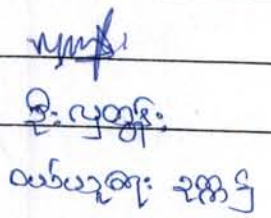 ဦးလှထွန်း
ဝယ်ယူရေး ဥက္ကဌ